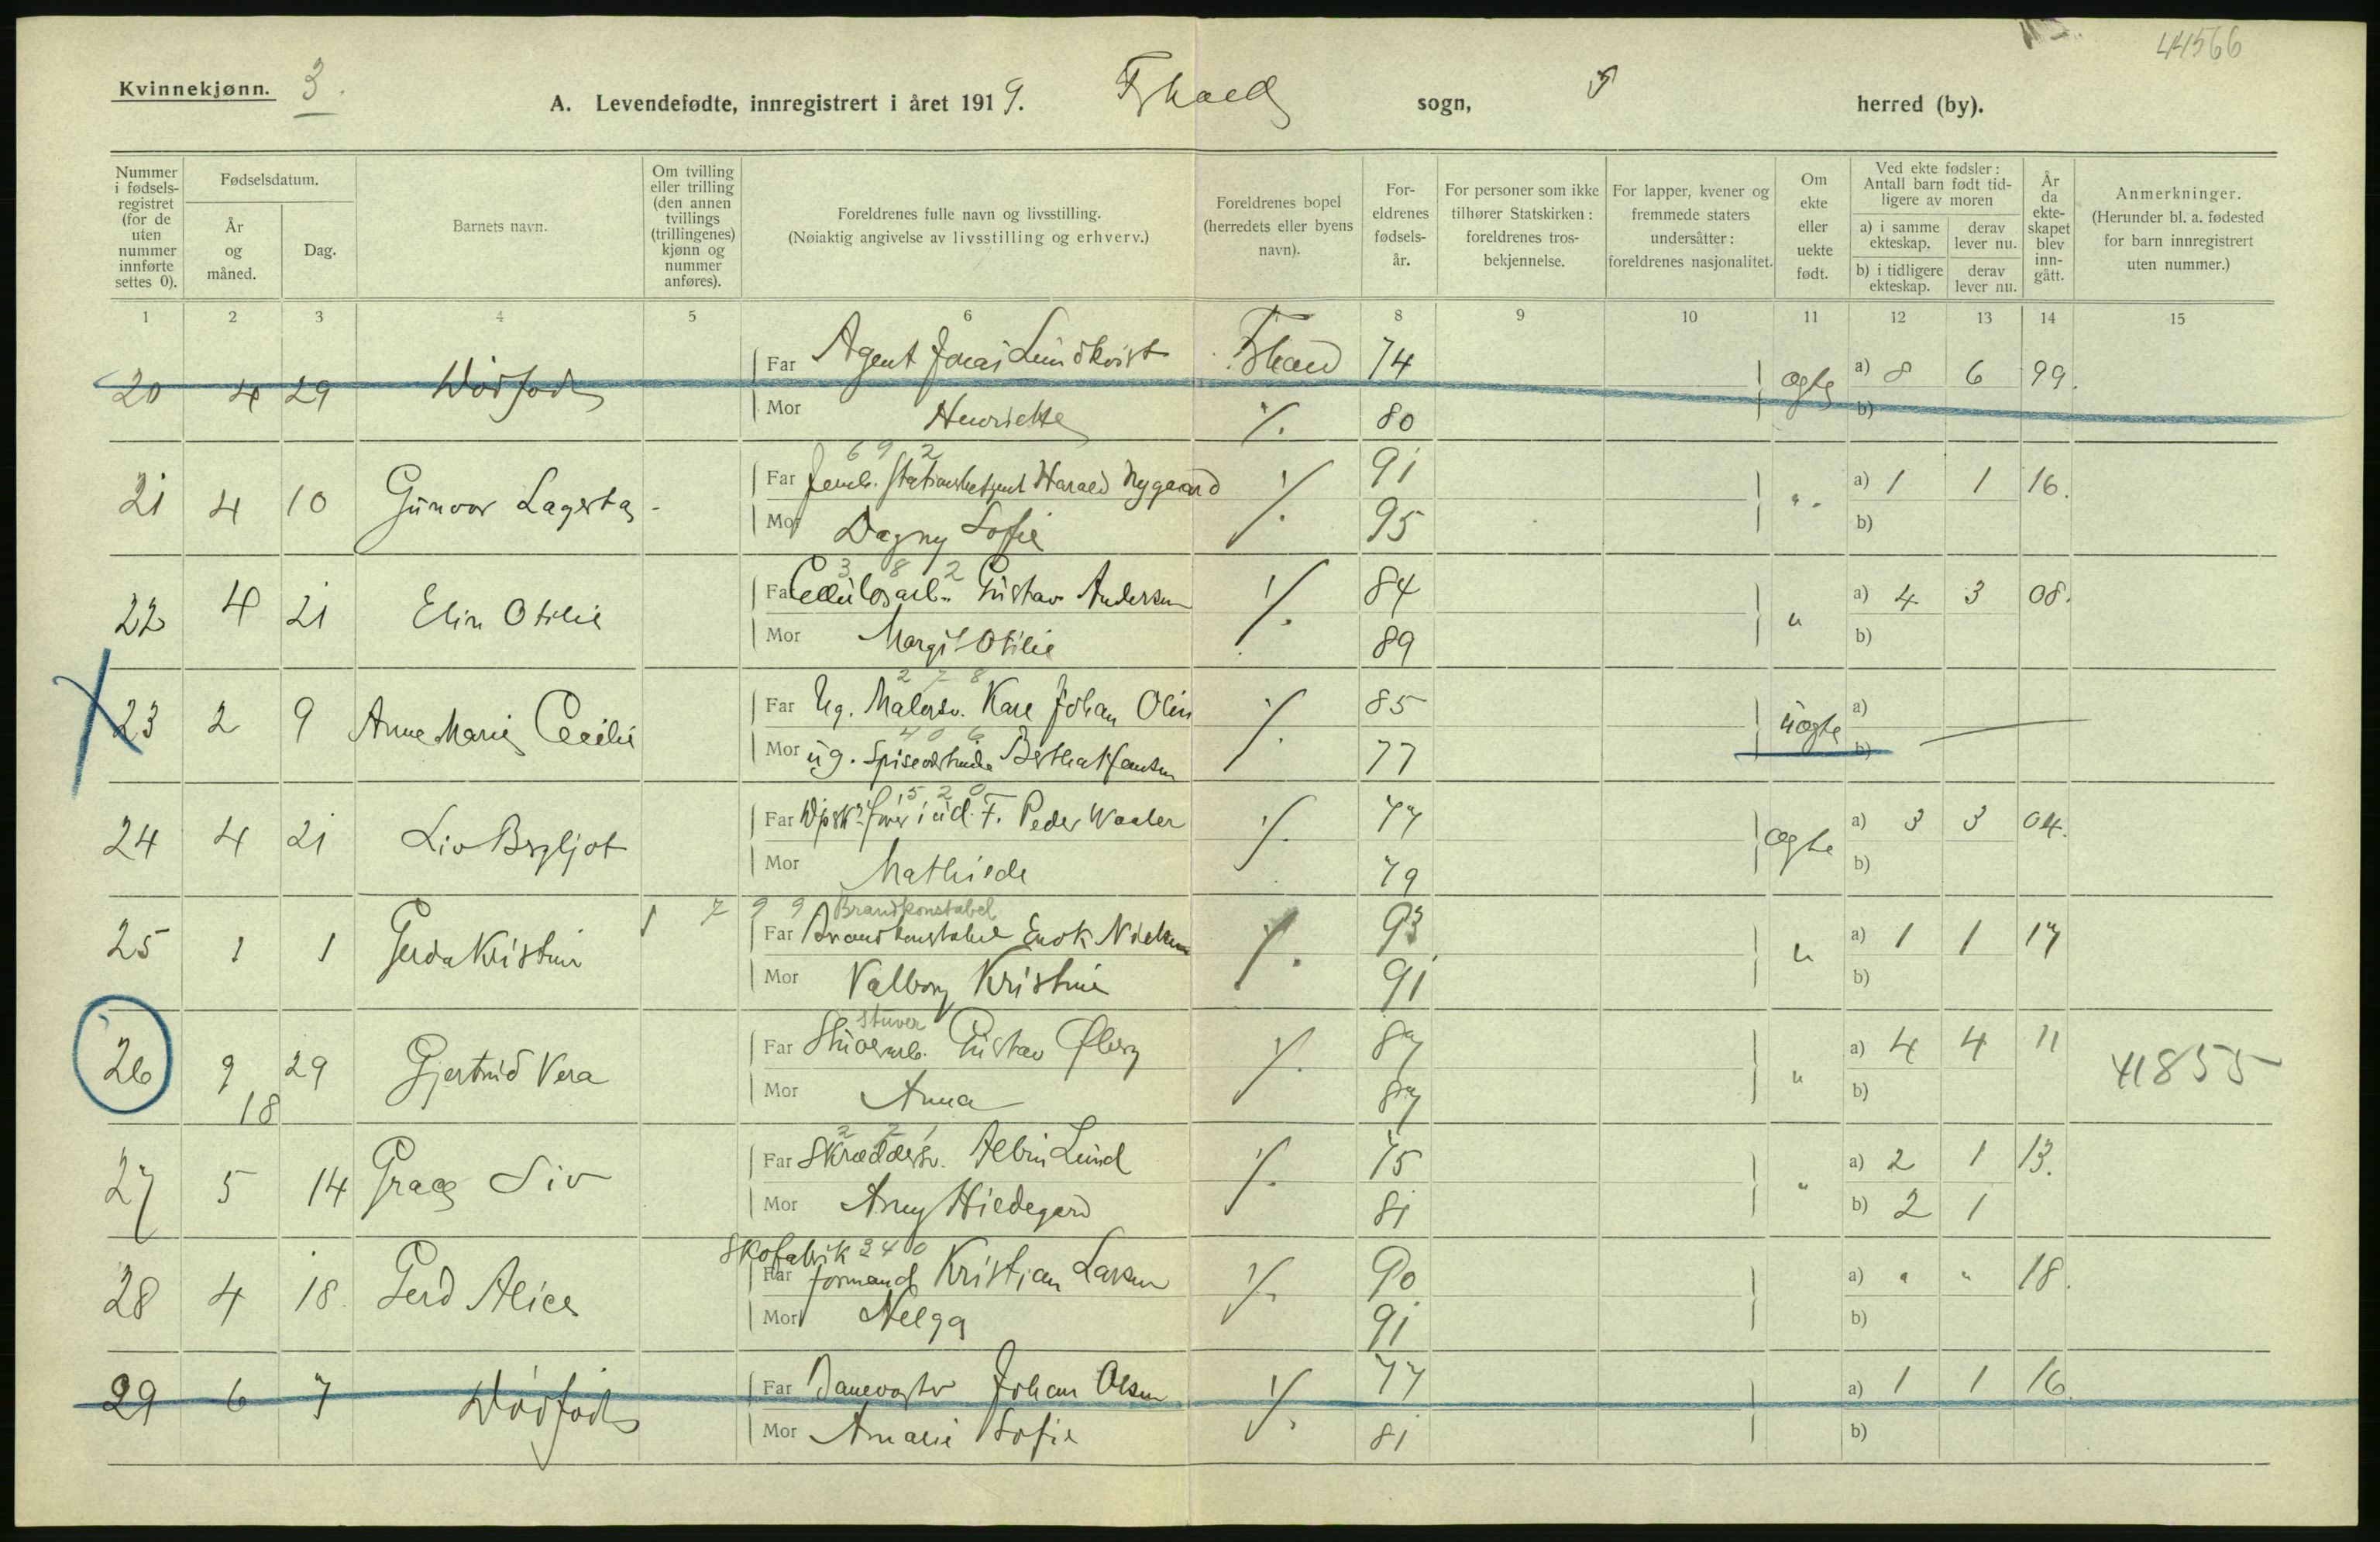 44566
Kvinnekjønn. 3.
A. Levendefødte, innregistrert i året 1919. Fhald sogn, herred (by).
Nummer i fødsels-registret (for de uten nummer innførte settes 0).
Fødselsdatum.
År og måned.
Dag.
Barnets navn.
Om tvilling eller trilling (den annen tvillings (trillingenes) kjønn og nummer anføres).
Foreldrenes fulle navn og livsstilling.
(Nøiaktig angivelse av livsstilling og erhverv.)
Foreldrenes bopel (herredets eller byens navn).
For-eldrenes fødsels-år.
For personer som ikke tilhører Statskirken: foreldrenes tros-bekjennelse.
For lapper, kvener og fremmede staters undersåtter: foreldrenes nasjonalitet.
Om ekte eller uekte født.
Ved ekte fødsler: Antall barn født tid-ligere av moren
a) i samme ekteskap.
derav lever nu.
b) i tidligere ekteskap.
derav lever nu.
År da ekte-skapet blev inn-gått.
Anmerkninger.
(Herunder bl. a. fødested for barn innregistrert uten nummer.)
1 2 3 4 5 6 8 9 10 11 12 13 14 15
20 4 29 Dødfødt Far Agent Jonas Lundkvist Fhald 74 ægte a) 8 6 99.
Mor Henriette ./. 80 b)
692
21 4 10 Gunvor Lagerta - Far Jernb. Stationsbetjent Harald Nygaard ./. 91 ". a) 1 1 16.
Mor Dagny Sofie 95 b)
382
22 4 21 Elin Otilie Far Cellulosarb. Gustav Andersen ./. 84 " a) 4 3 08.
Mor Margit Otilie 89 b)
278
23 2 9 Anne Marie Cecilie Far Ug. Malersv. Karl Johan Olin ./. 85 uægte a)
406
Mor ug. Bertha Hansen 77 b)
520
24 4 21 Liv Bergljot Far Peder Waaler ./. 77 ægte a) 3 3 04.
Mor Mathilde 79 b)
1 7 9 9 Brandkonstabel
25 1 1 Gerda Kristine Far Brandkonstabel Enok Nielsen ./. 93 " a) 1 1 17
Mor Valborg Kristine 91 b)
Stuver
26 9 29 Gjertrud Vera Far Stuerarb. Gustav Øberg ./. 87 " a) 4 4 11 41855
18 Mor Anna 87 b)
221
27 5 14 Grace Siv Far Skræddersv. Albin Lund ./. 75 " a) 2 1 13.
Mor Anny Hildegard 81 b) 2 1
Skofabrik 340
28 4 18. Gerd Alice Far formand Kristian Larsen ./. 90 a) " " 18.
Mor Helga 91 b)
29 6 7 Dødfødt Far Banevogter Johan Olsen ./. 77 a) 1 1 16.
Mor Amalie Sofie 81 b)